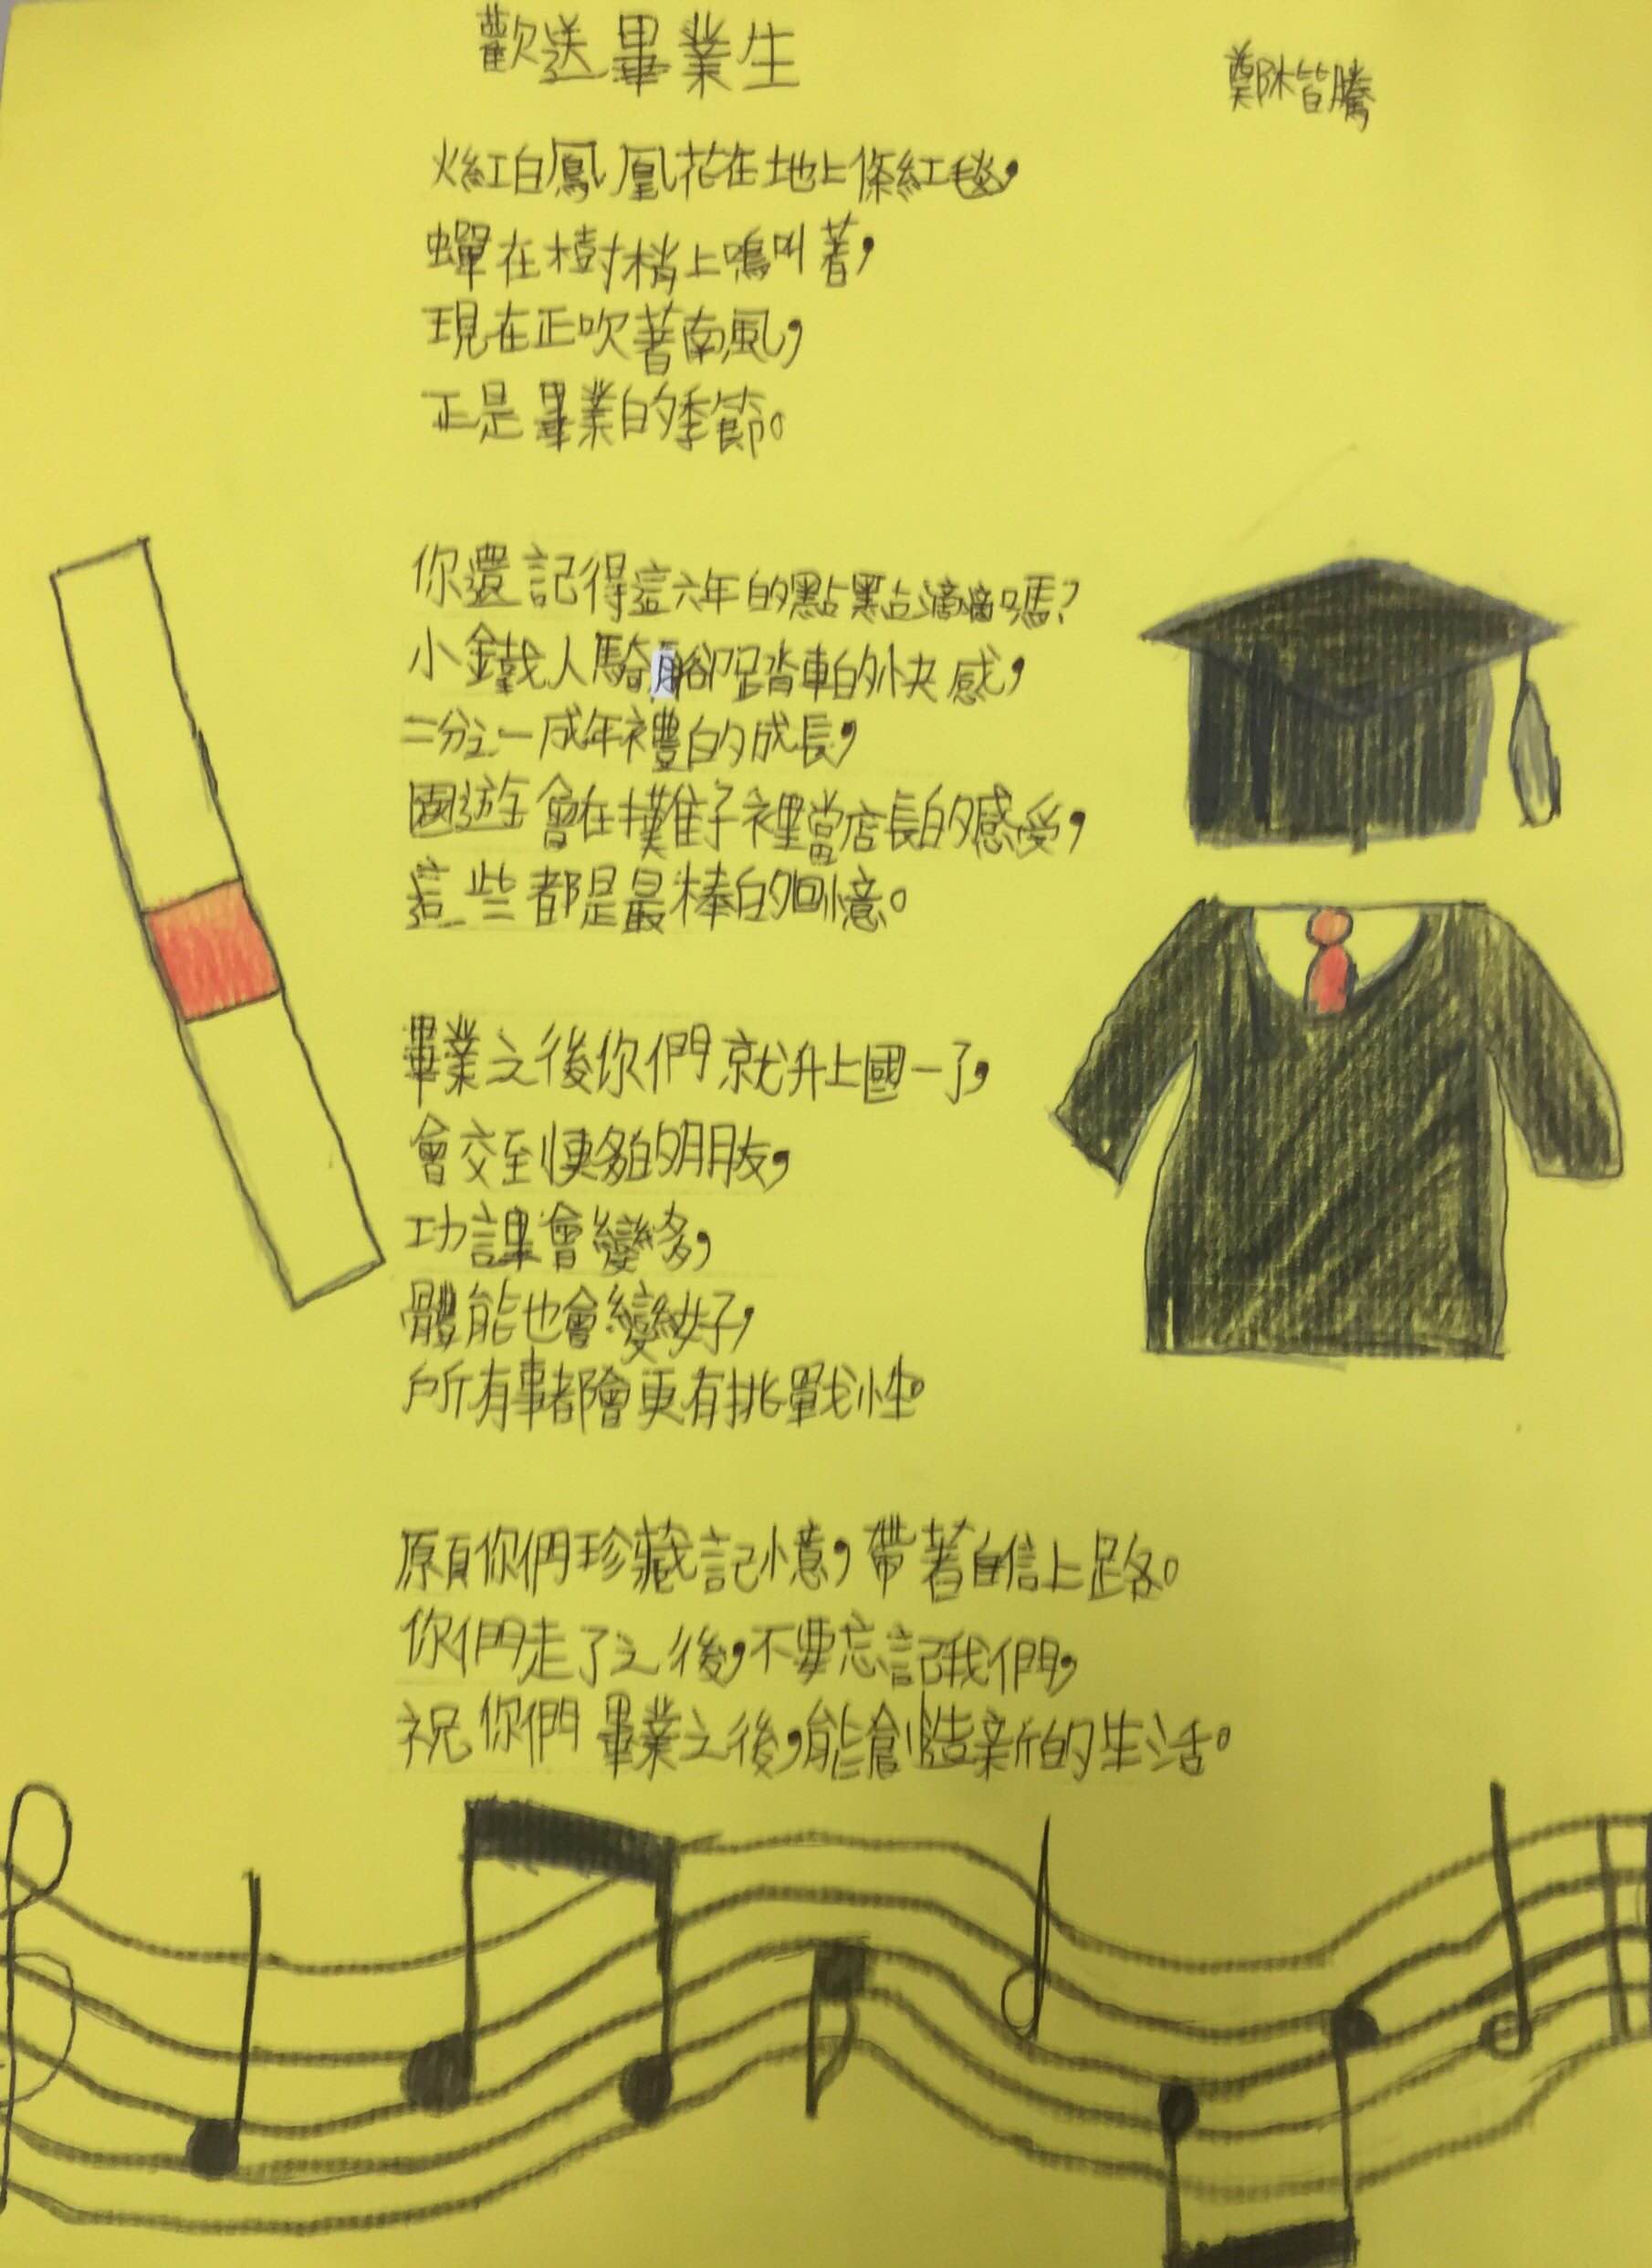 歡送畢業生
鄭林皆騰
火紅白鳳凰花在地上條紅毯,
蟬在樹梢上鳴叫著,
現在正吹著南風,
正是畢業的季節。
你還記得這六年的點點滴滴嗎?
小鐵人騎腳踏車的快感,
二分之一成年禮的成長,
園遊會在攤子裡當店長的感受,
這些都是最棒的回憶。
畢業之後你們就升上國一了,
會交到更多的朋友,
功課會變多,
體能也會變好,
所有事都會更有挑戰性。
願你們珍藏記憶,帶著自信上路。
你們走了之後,不要忘記我們,
祝你們畢業之後,能創造新的生活。